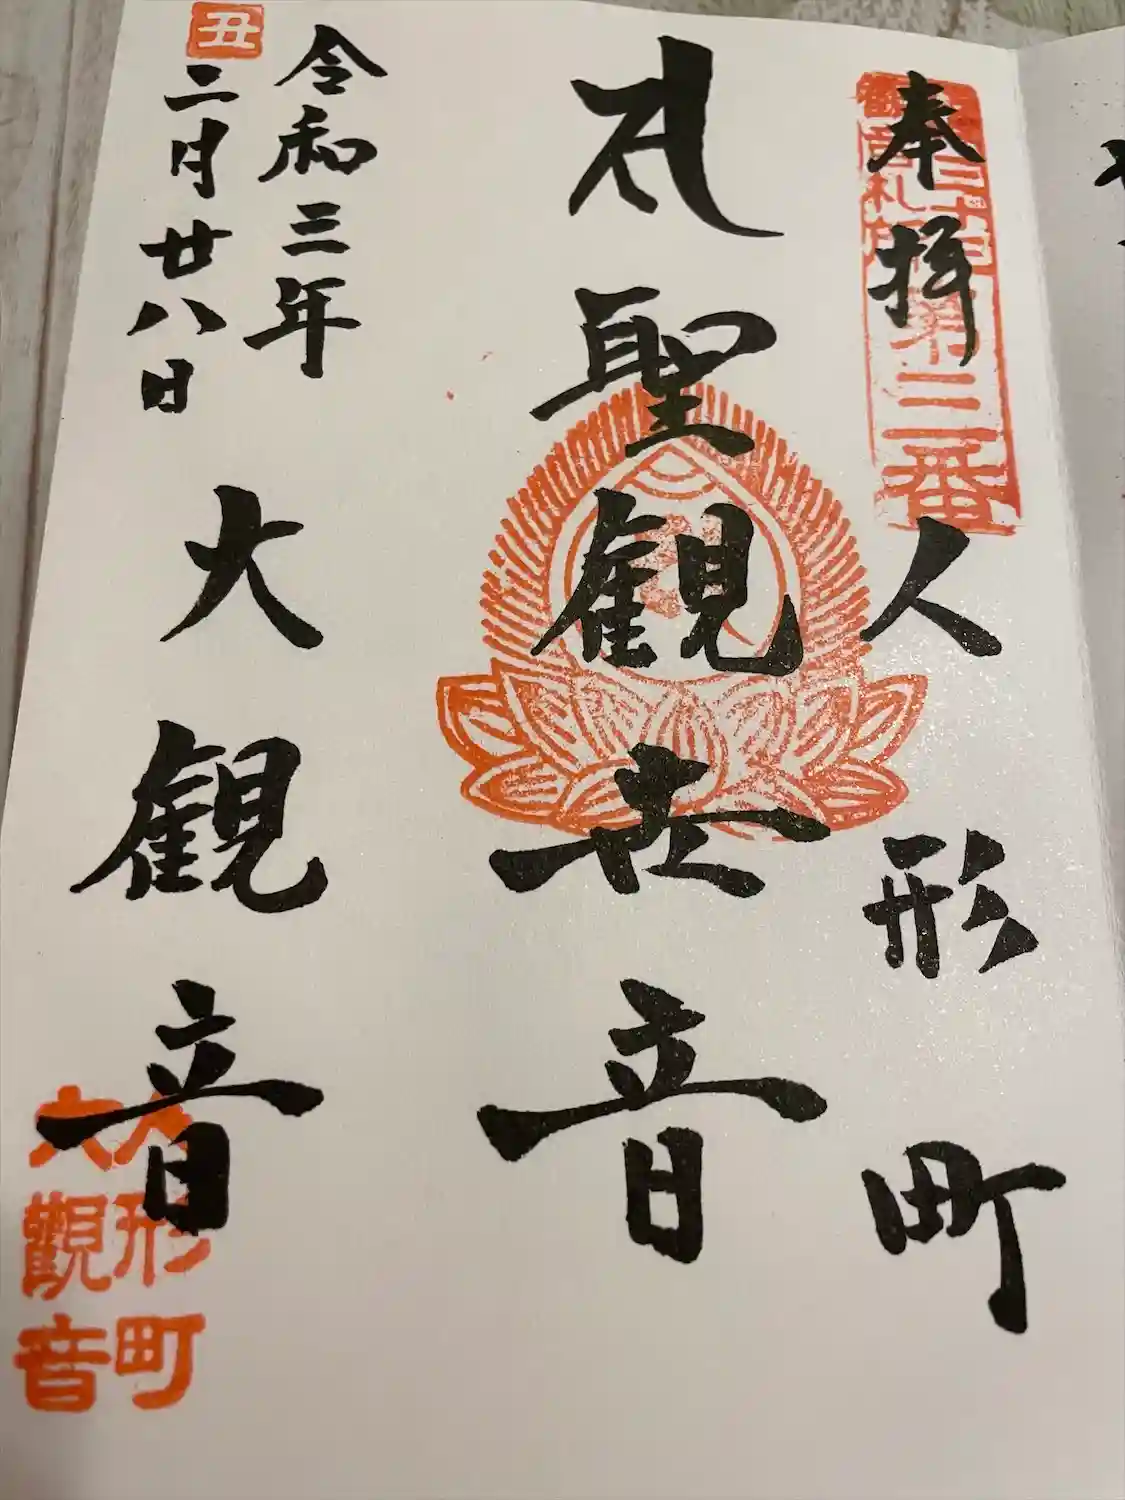 奉拝
人形町
聖観世音
令和三年
二月廿八日
大観音
丑
第三番
人形町
大觀音